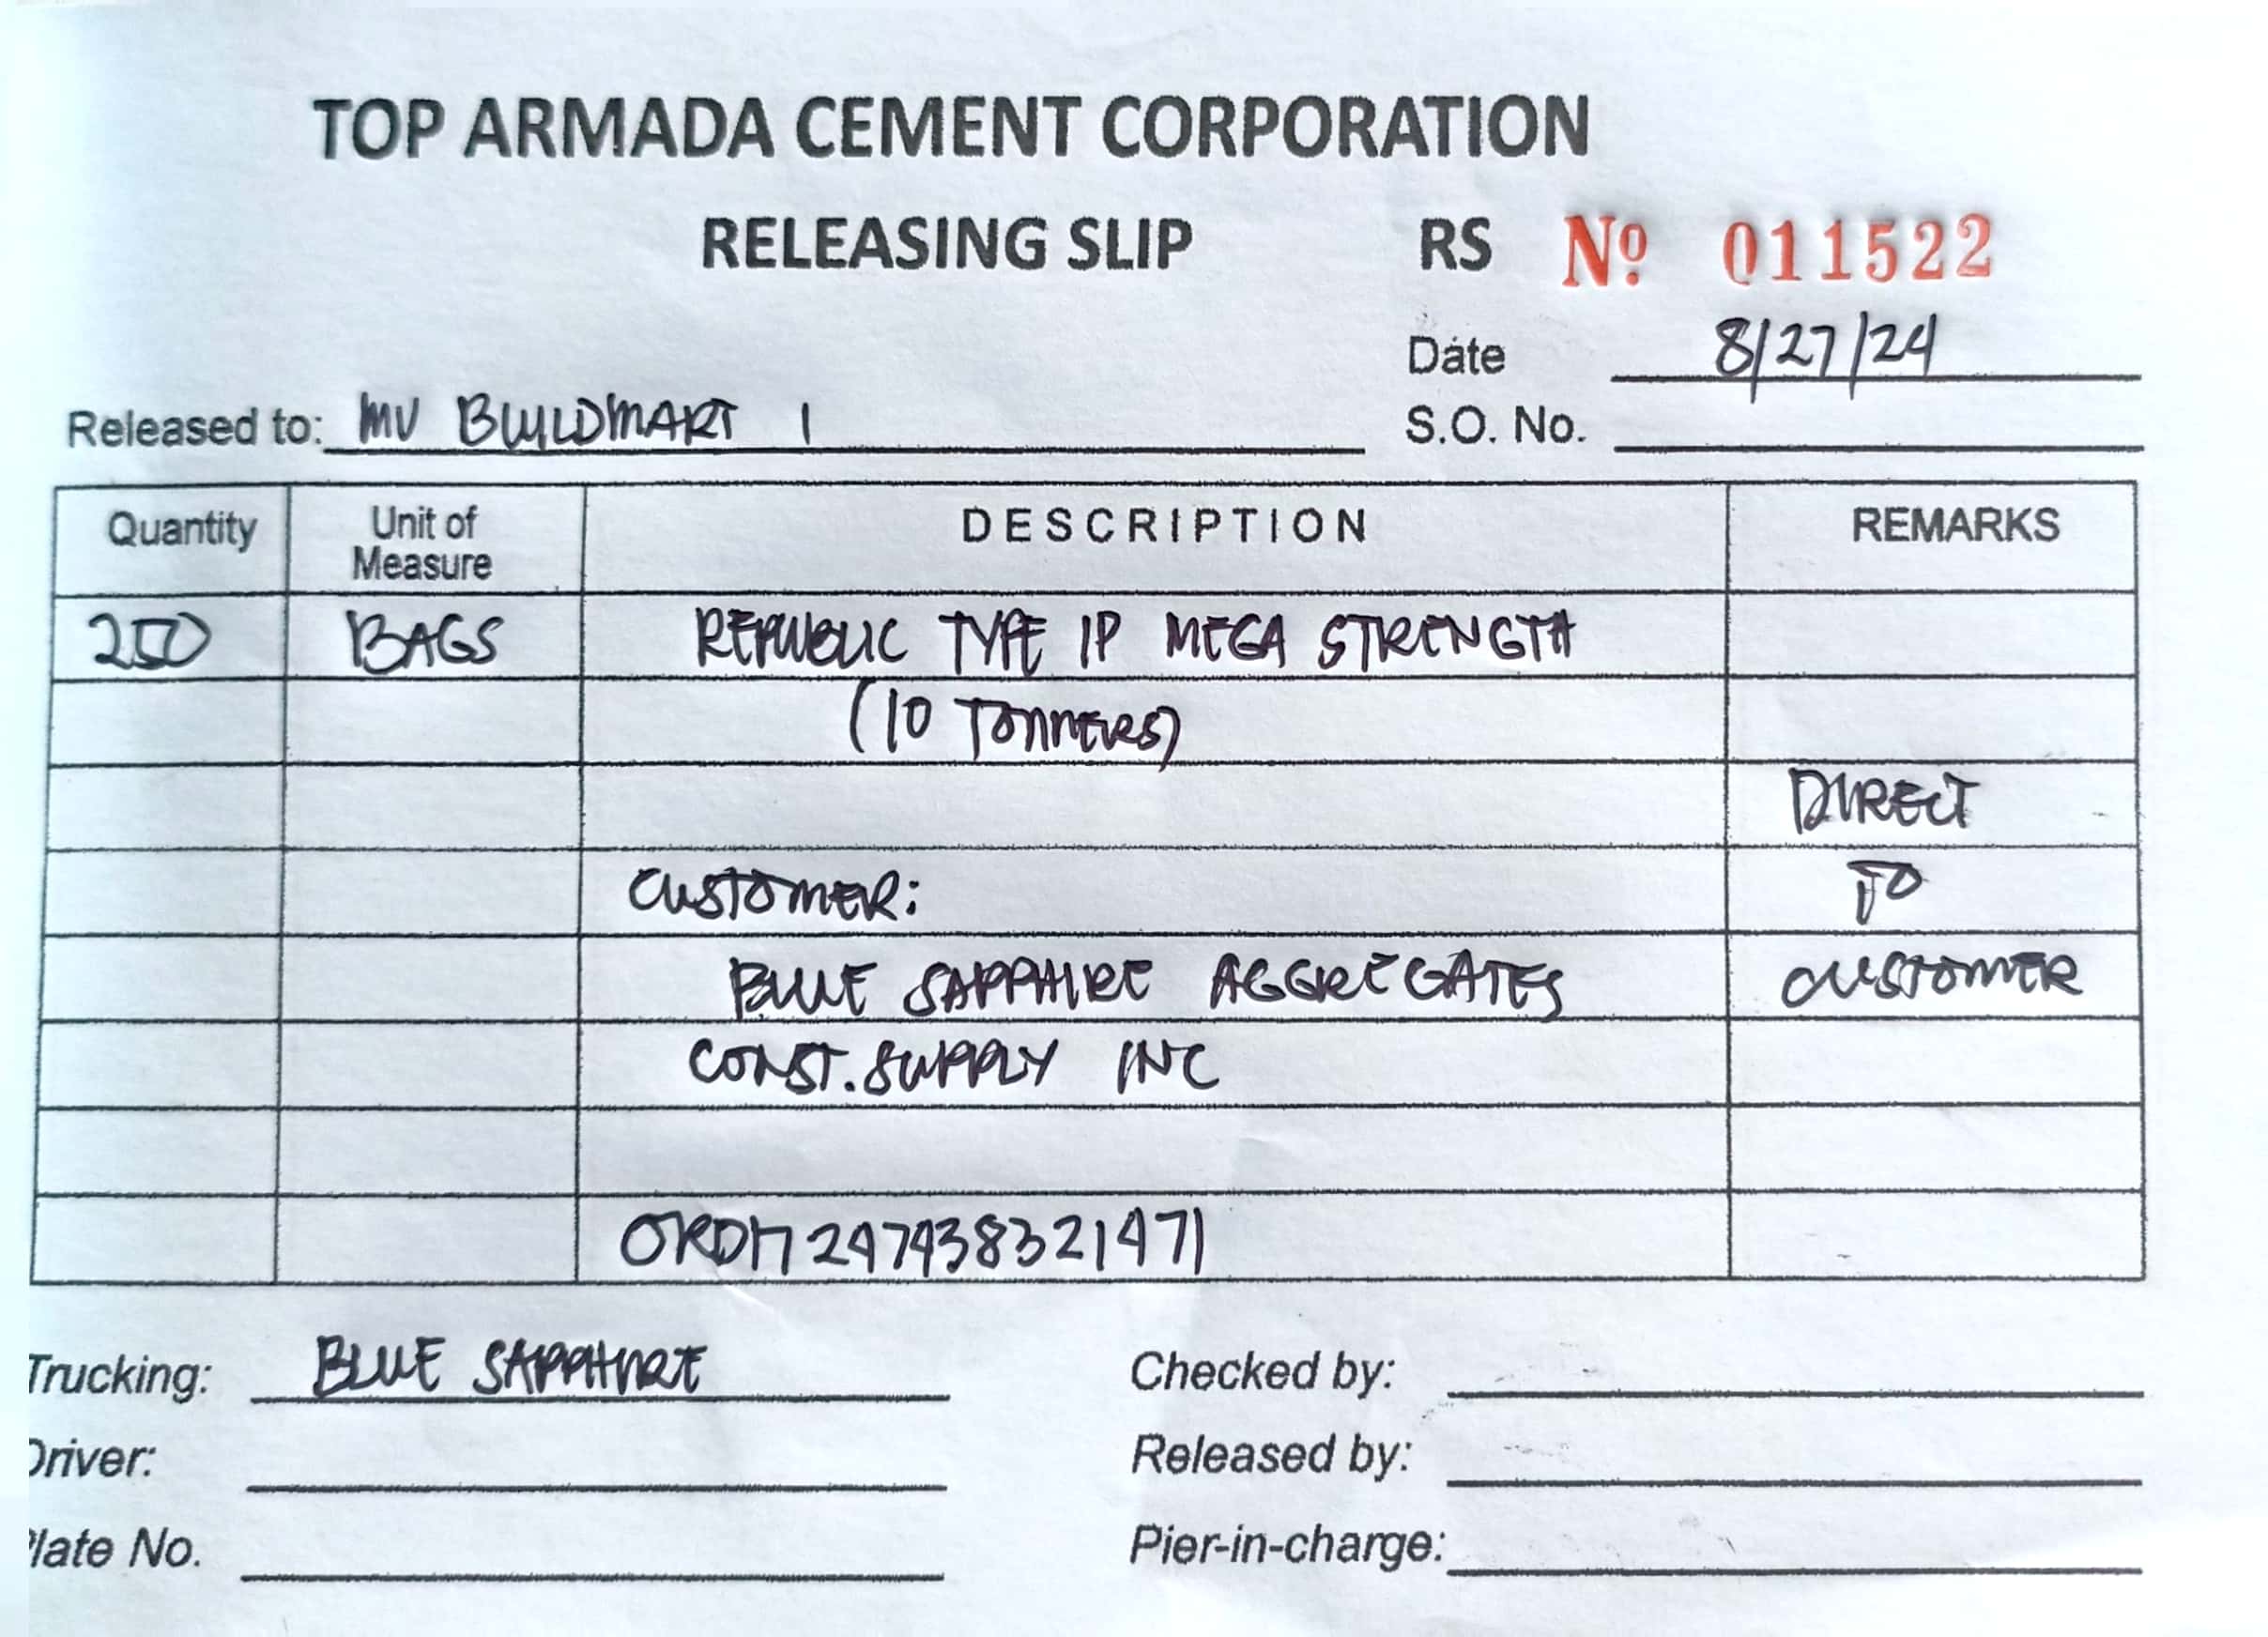 TOP ARMADA CEMENT CORPORATION
RELEASING SLIP RS Nº 011522
Date 8/27/24
Released to: MV BUILDMART 1 S.O. No.
Quantity Unit of Measure DESCRIPTION REMARKS
250 BAGS REPUBLIC TYPE IP MEGA STRENGTH
(10 TONNERS)
DIRECT
CUSTOMER: TO
BLUE SAPPHIRE AGGREGATES CUSTOMER
CONST. SUPPLY INC
ORDM247438321471
Trucking: BLUE SAPPHIRE Checked by:
Driver: Released by:
Plate No. Pier-in-charge: